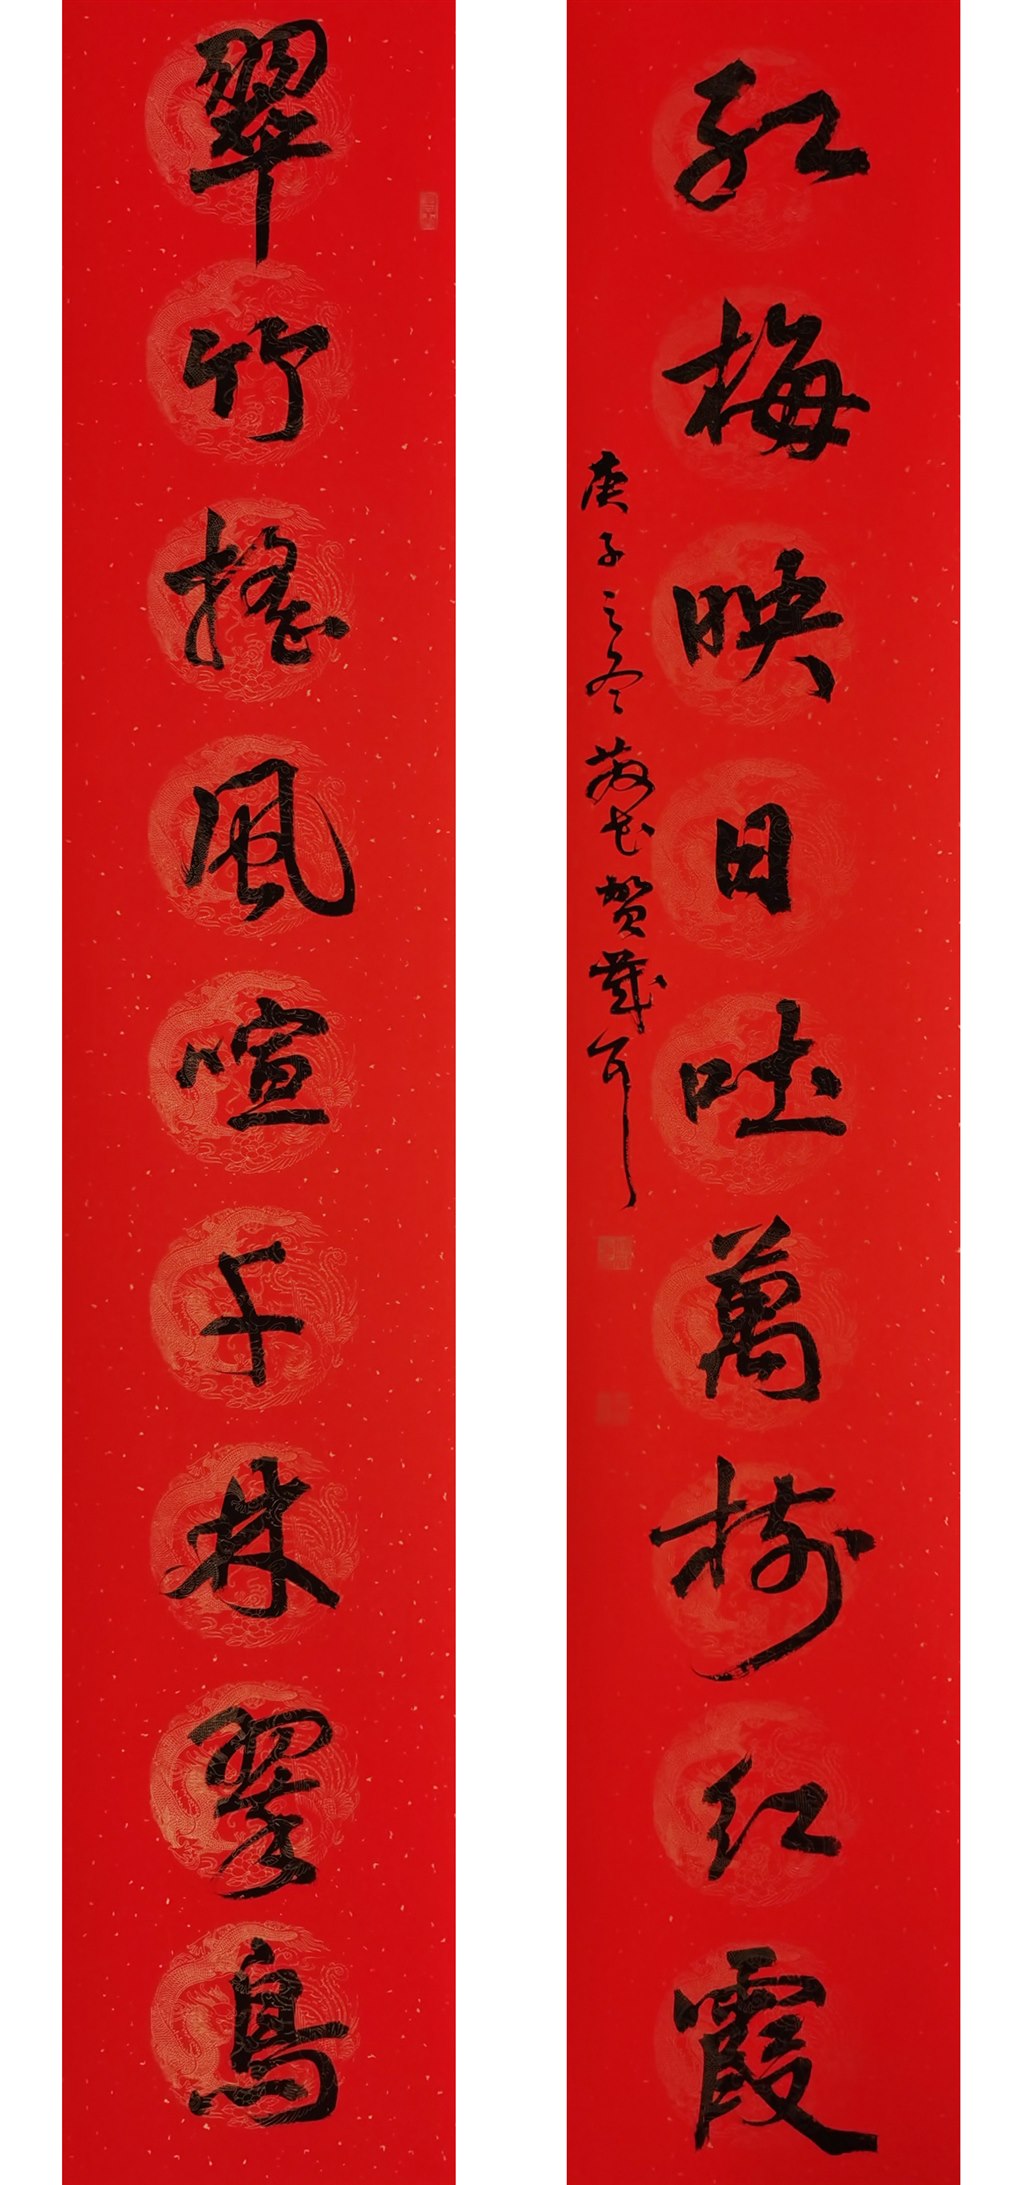 翠竹搖風喧千林翠鳥
红梅映日吐萬樹红霞
庚子之冬